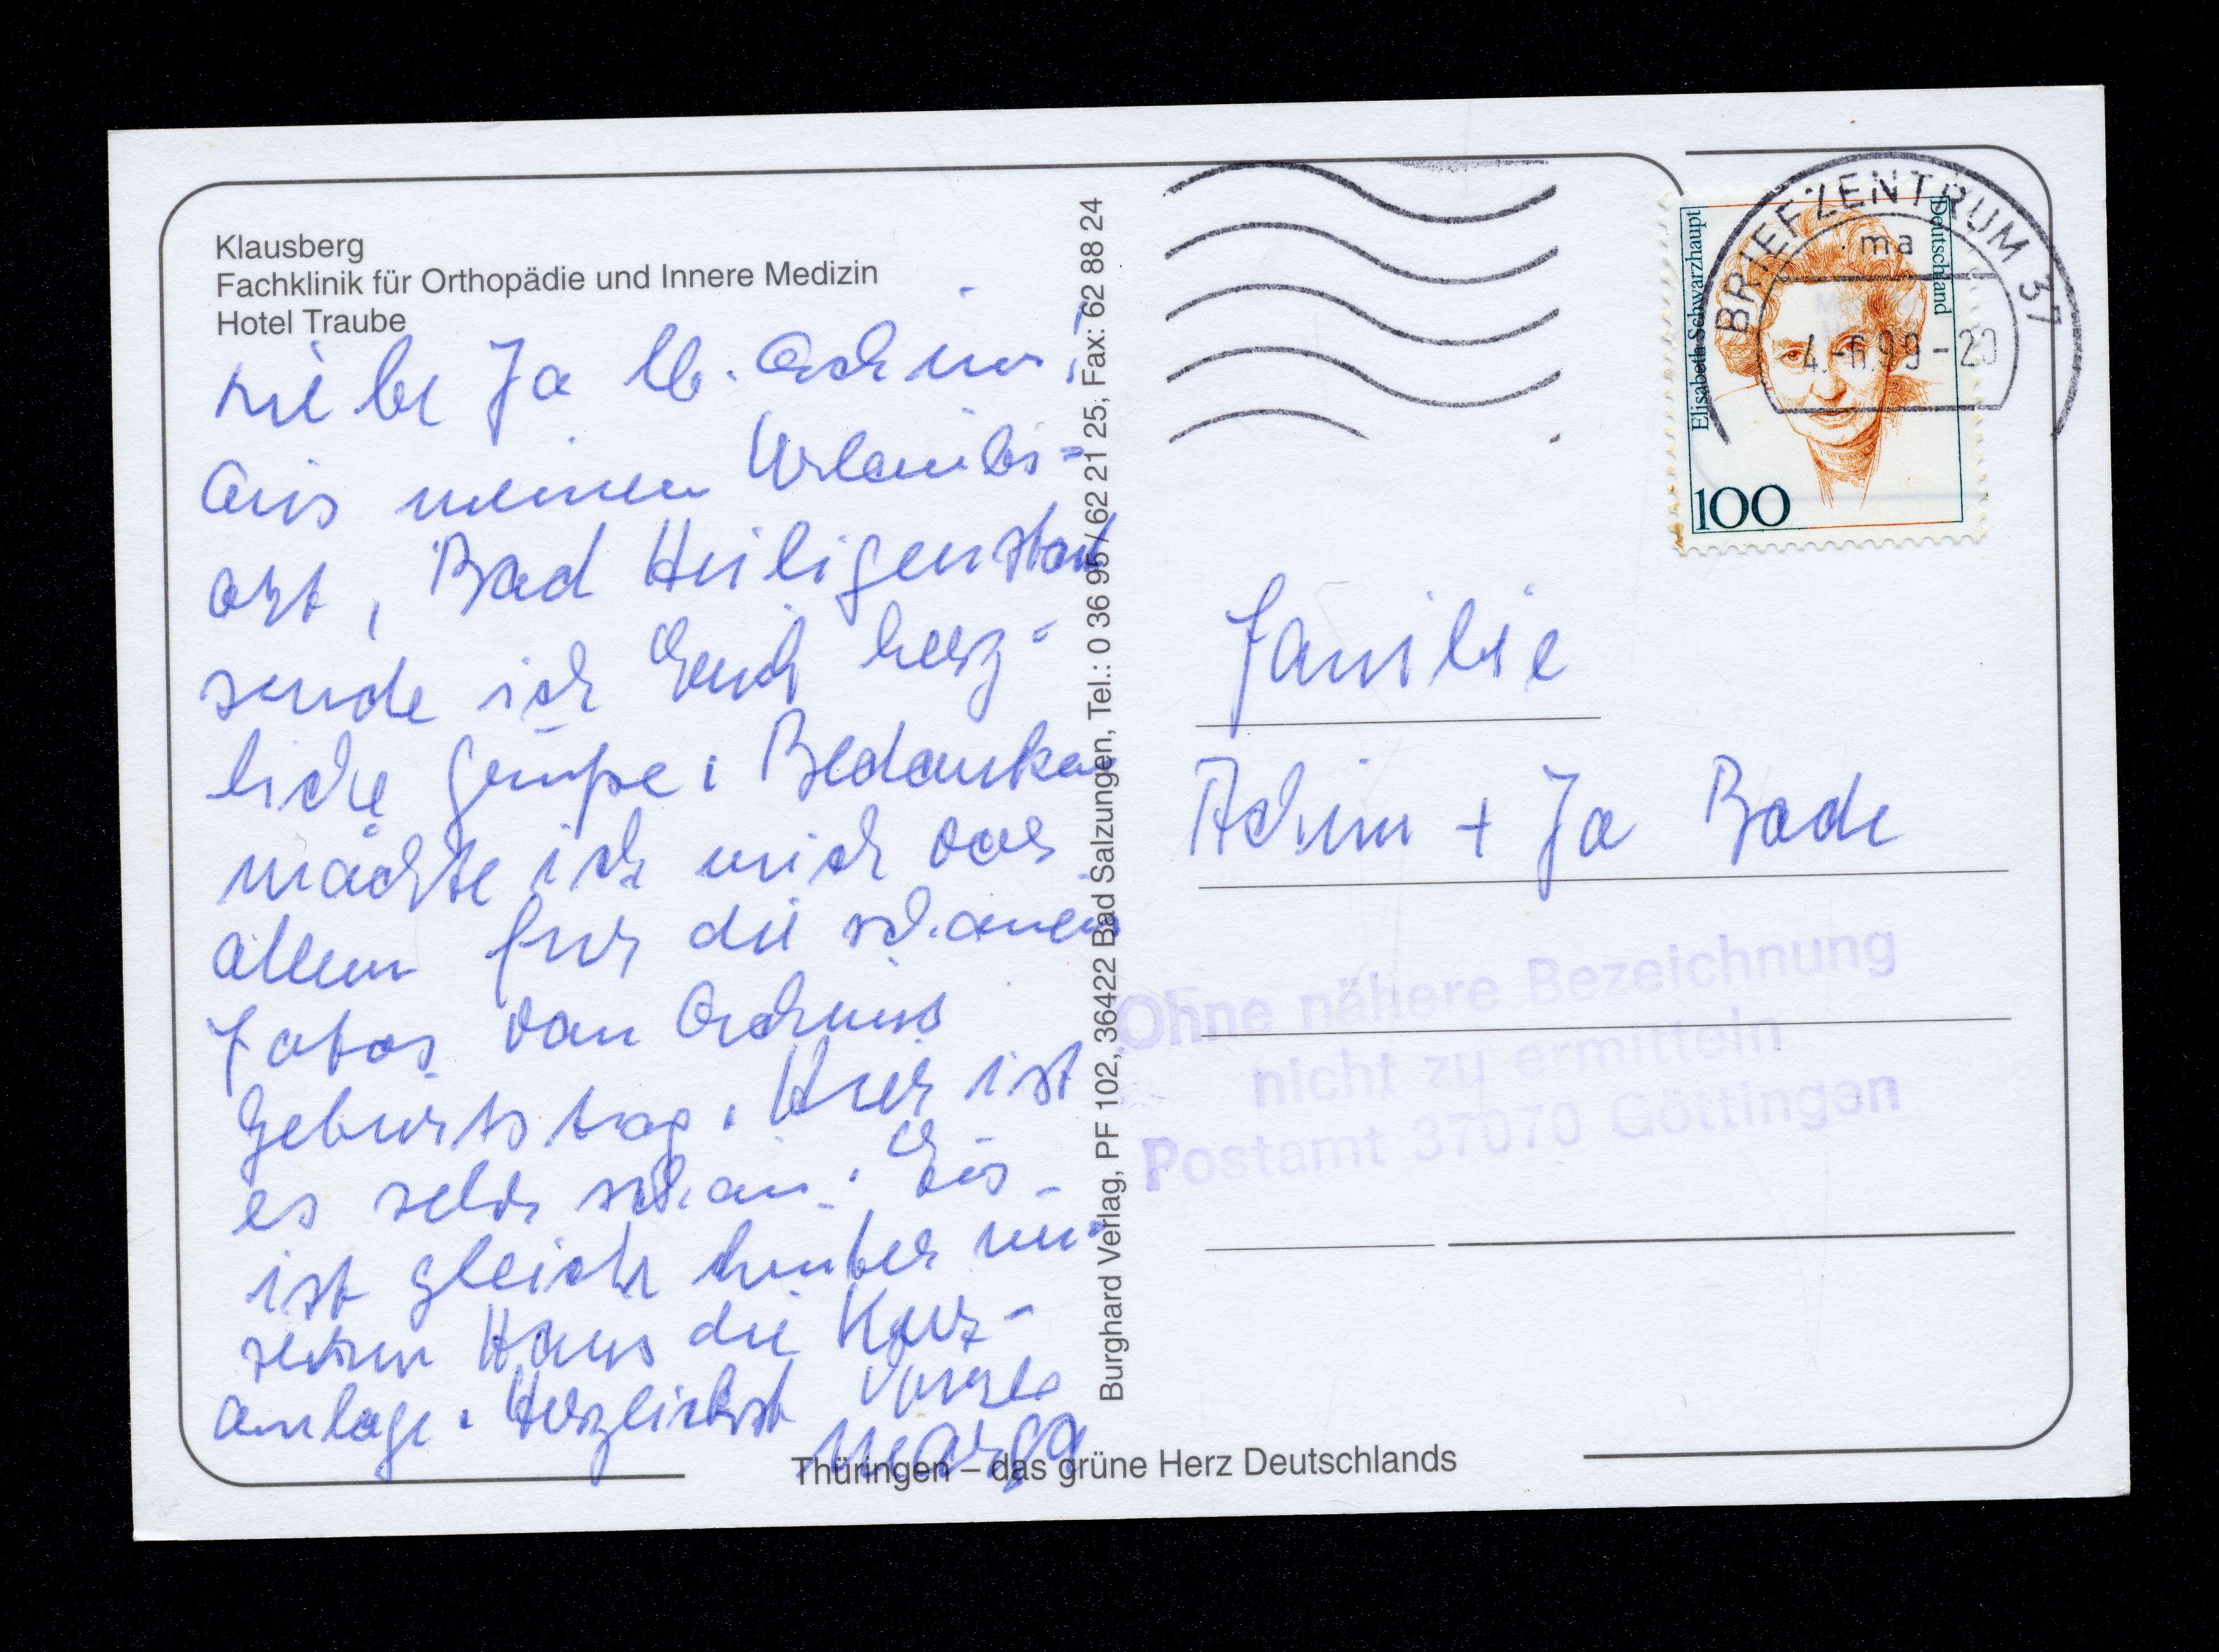 Klausberg
Fachklinik für Orthopädie und Innere Medizin
Hotel Traube
Liebe Ja lb. Achim!
Aus meinen Urlaubs-
ort, Bad Heiligenstad
sende ich Euch herz-
liche Grüße. Bedanken
möchte ich mich vor
allem für die schönen
Fotos von Achims
Geburtstag. Hier ist
es sehr schön. Es
ist gleich hinter un-
serem Haus die Kur-
anlage. Herzlichst
Marga
Burghard Verlag, PF 102, 36422 Bad Salzungen, Tel.: 0 36 95 / 62 21 25, Fax: 62 88 24
Thüringen – das grüne Herz Deutschlands
Elisabeth Schwarzhaupt
Deutschland
100
BRIEFZENTRUM 37
ma
4.-6.99-20
Familie
Achim + Ja Bade
Ohne nähere Bezeichnung
nicht zu ermitteln
Postamt 37070 Göttingen